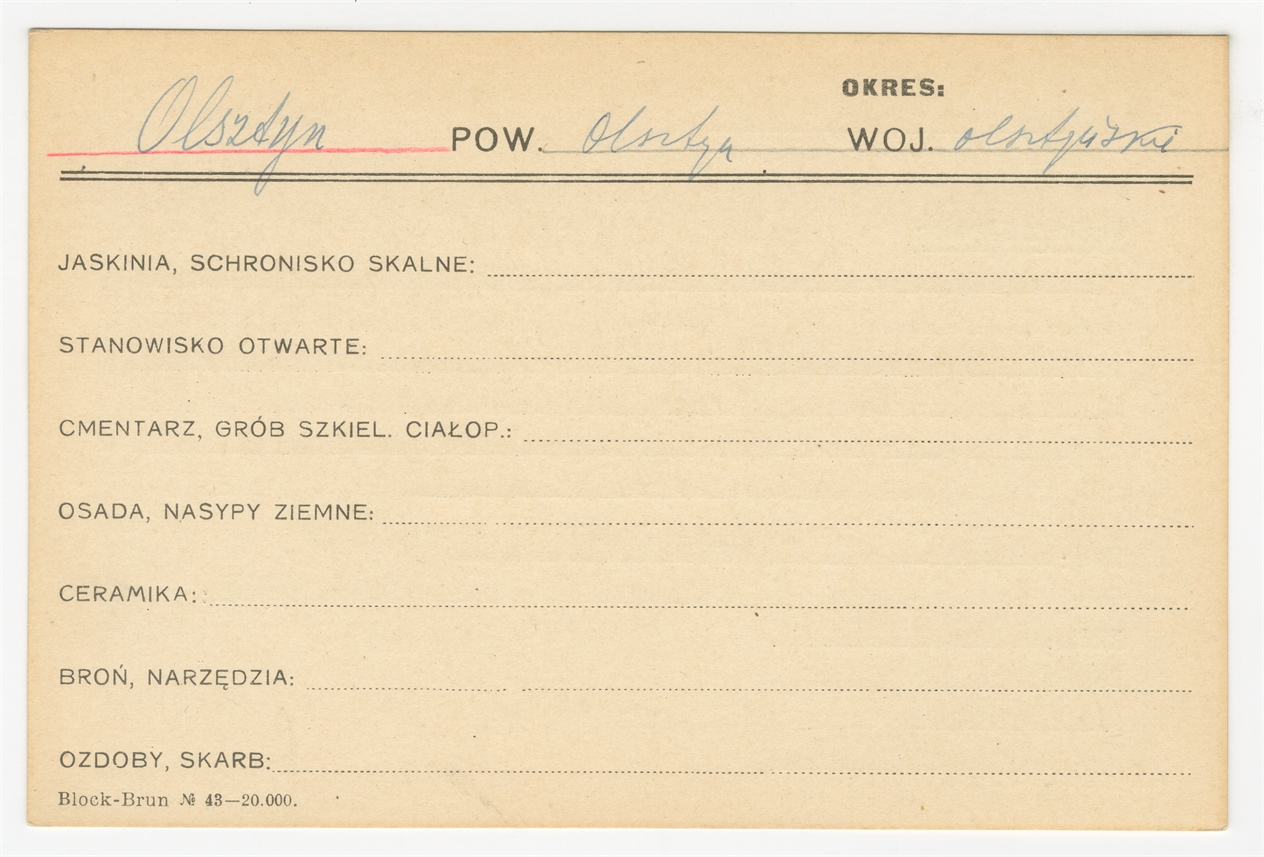 OKRES:
Olsztyn POW. Olsztyn WOJ. olsztyński
JASKINIA, SCHRONISKO SKALNE:
STANOWISKO OTWARTE:
CMENTARZ, GRÓB SZKIEL. CIAŁOP.:
OSADA, NASYPY ZIEMNE:
CERAMIKA:
BROŃ, NARZĘDZIA:
OZDOBY, SKARB:
Block-Brun № 43—20.000.